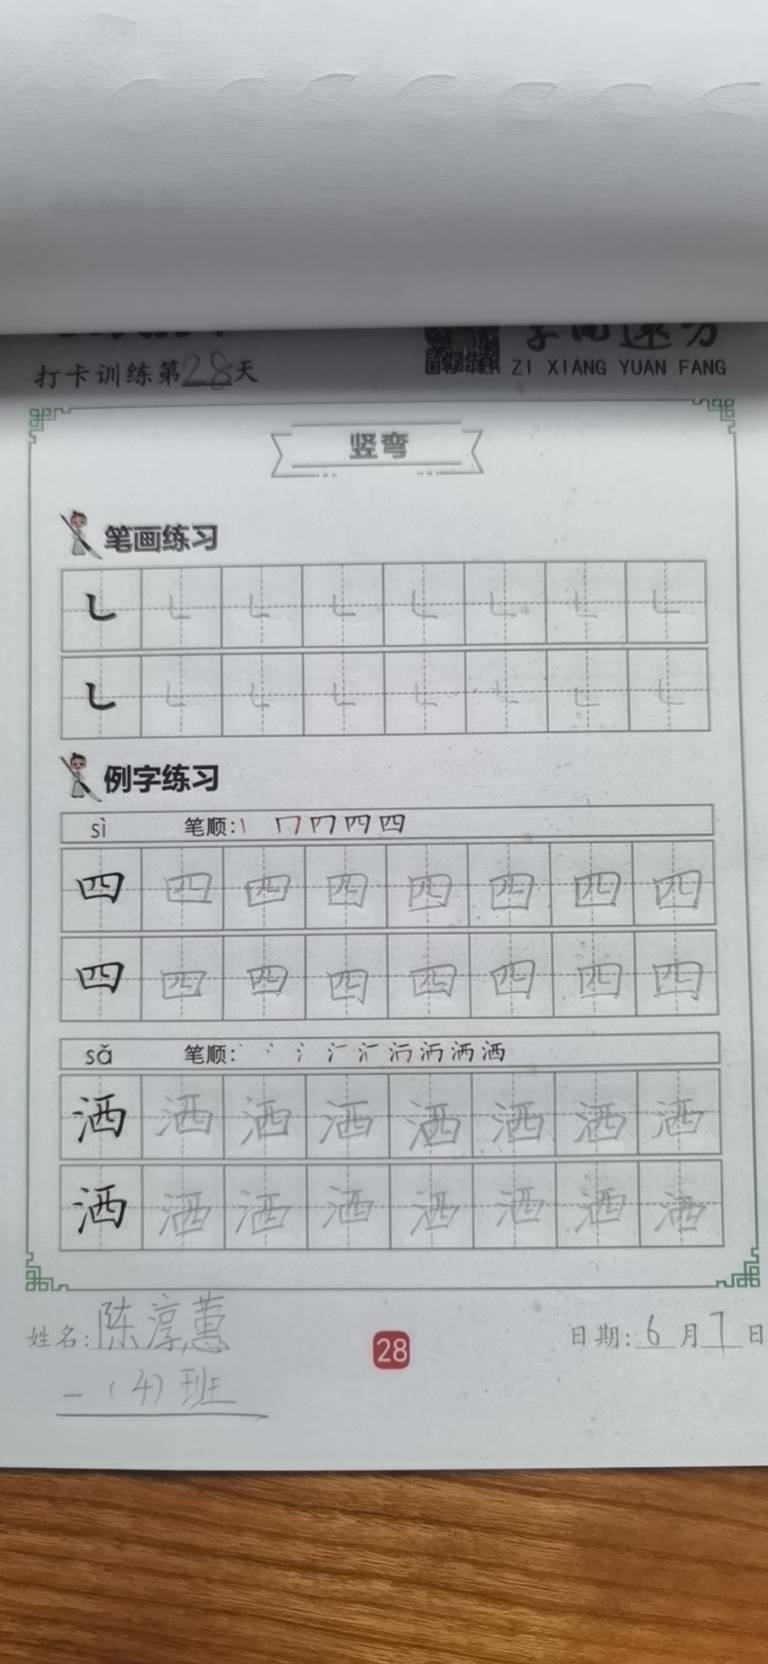 打卡训练第28天
ZI XIANG YUAN FANG
竖弯
笔画练习
例字练习
sì 笔顺: 四
四 四 四 四 四 四 四 四
四 四 四 四 四 四 四 四
sǎ 笔顺: 洒
洒 洒 洒 洒 洒 洒 洒 洒
洒 洒 洒 洒 洒 洒 洒 洒
姓名:陈淳蕙 28 日期:6月7日
一(4)班